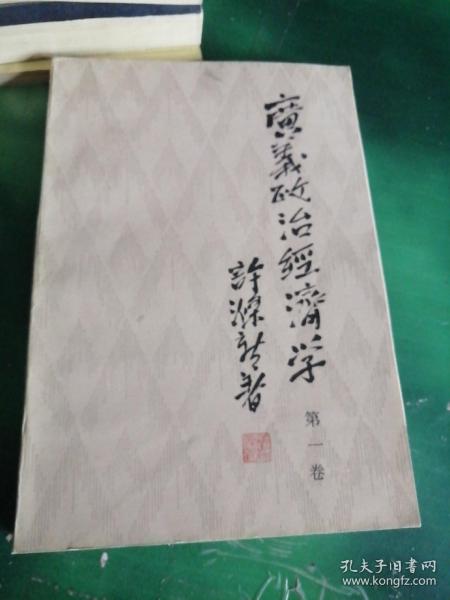 廣義政治經濟学
許滌新著
第一卷
孔夫子旧书网
www.kongfz.com